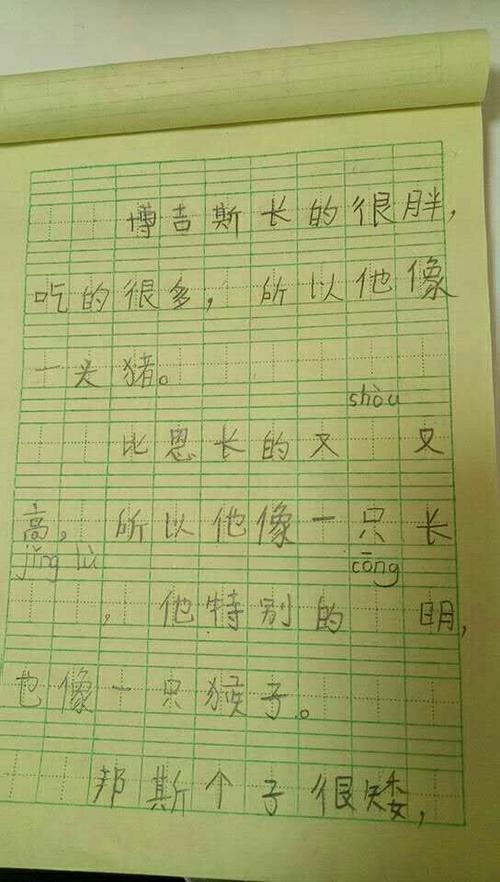 博吉斯长的很胖,
吃的很多,所以他像
一头猪。
shòu
比恩长的又 又
高,所以他像一只长
jǐng lù cōng
,他特别的 明,
也像一只猴子。
邦斯个子很矮,